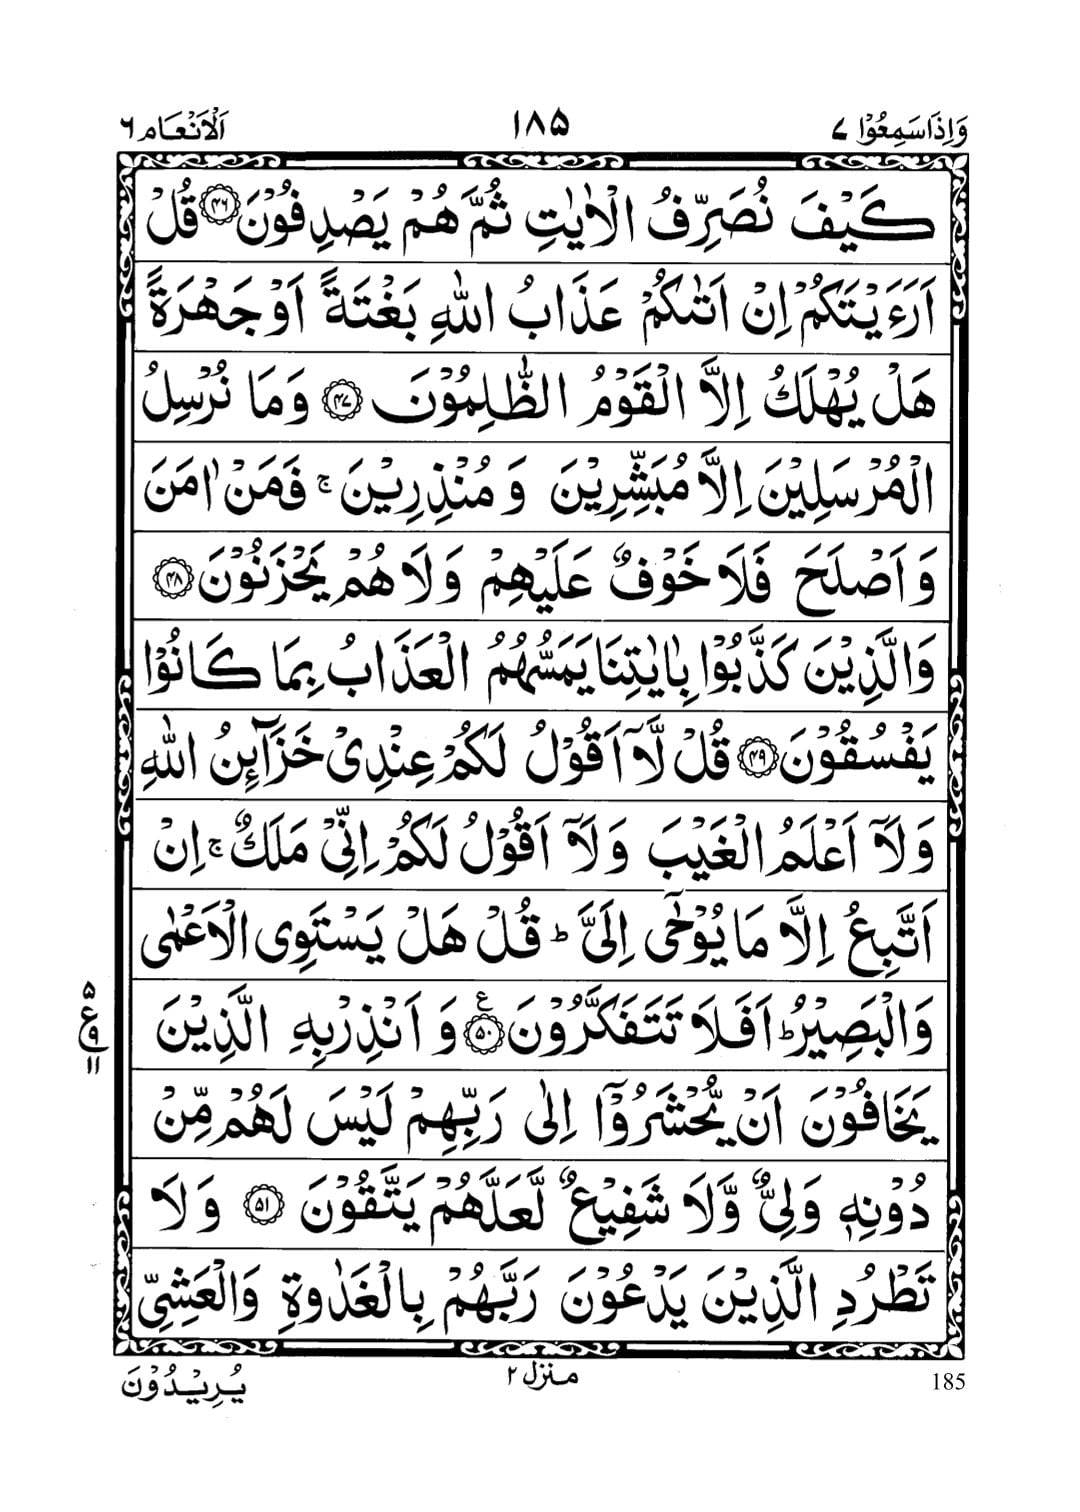 وَاِذَاسَمِعُوْا ٧
١٨٥
اَلْاَنْعَام ٦
كَيْفَ نُصَرِّفُ الْاٰيٰتِ ثُمَّ هُمْ يَصْدِفُوْنَ ۝٤٦ قُلْ
اَرَءَيْتَكُمْ اِنْ اَتٰىكُمْ عَذَابُ اللّٰهِ بَغْتَةً اَوْ جَهْرَةً
هَلْ يُهْلَكُ اِلَّا الْقَوْمُ الظّٰلِمُوْنَ ۝٤٧ وَمَا نُرْسِلُ
الْمُرْسَلِيْنَ اِلَّا مُبَشِّرِيْنَ وَ مُنْذِرِيْنَ ۚ فَمَنْ اٰمَنَ
وَ اَصْلَحَ فَلَا خَوْفٌ عَلَيْهِمْ وَ لَا هُمْ يَحْزَنُوْنَ ۝٤٨
وَالَّذِيْنَ كَذَّبُوْا بِاٰيٰتِنَا يَمَسُّهُمُ الْعَذَابُ بِمَا كَانُوْا
يَفْسُقُوْنَ ۝٤٩ قُلْ لَّاۤ اَقُوْلُ لَكُمْ عِنْدِىْ خَزَآئِنُ اللّٰهِ
وَلَاۤ اَعْلَمُ الْغَيْبَ وَلَاۤ اَقُوْلُ لَكُمْ اِنِّىْ مَلَكٌ ۚ اِنْ
اَتَّبِعُ اِلَّا مَا يُوْحٰۤى اِلَىَّ ؕ قُلْ هَلْ يَسْتَوِى الْاَعْمٰى
وَالْبَصِيْرُ ؕ اَفَلَا تَتَفَكَّرُوْنَ ۝٥٠ ع وَ اَنْذِرْ بِهِ الَّذِيْنَ
٥
ع
٩
١١
يَخَافُوْنَ اَنْ يُّحْشَرُوْۤا اِلٰى رَبِّهِمْ لَيْسَ لَهُمْ مِّنْ
دُوْنِهٖ وَلِىٌّ وَّلَا شَفِيْعٌ لَّعَلَّهُمْ يَتَّقُوْنَ ۝٥١ وَلَا
تَطْرُدِ الَّذِيْنَ يَدْعُوْنَ رَبَّهُمْ بِالْغَدٰوةِ وَالْعَشِىِّ
185
منزل ٢
يُرِيْدُوْنَ